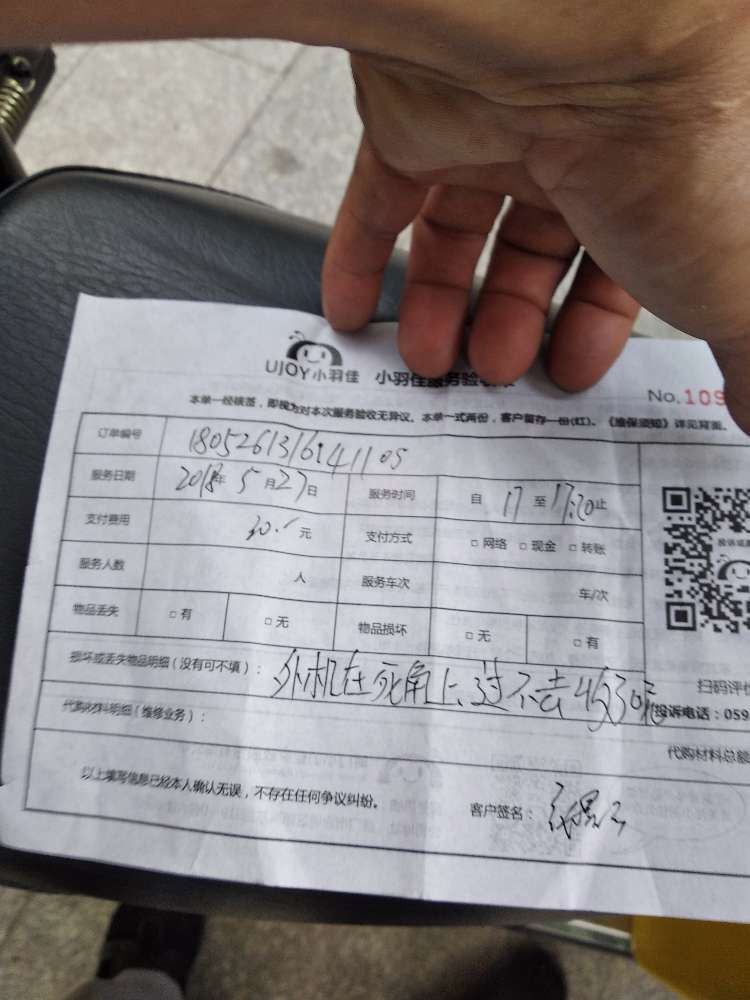 UJOY小羽佳 小羽佳服务验收
No.109
本单一经核签，即视为对本次服务验收无异议。本单一式两份，客户留存一份(红)。《维保须知》详见背面。
订单编号 1805261316141105
服务日期 2018年5月27日 服务时间 自17至17:20止
支付费用 30. 元 支付方式 □网络 □现金 □转账
服务人数 人 服务车次 车/次
物品丢失 □有 □无 物品损坏 □无 □有
投诉或
损坏或丢失物品明细（没有可不填）： 外机在死角上、过不去 收30元
扫码评价
代购材料明细（维修业务）：
投诉电话：059
代购材料总额
以上填写信息已经本人确认无误，不存在任何争议纠纷。 客户签名：